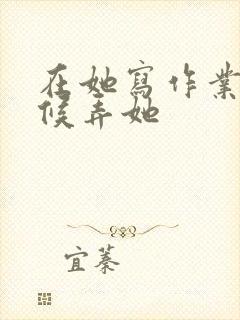 在她寫作業
候弄她
宜蓁